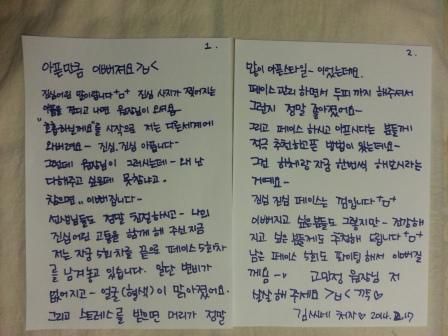 1.
아픈만큼 이뻐져요 >ㅂ<
진심어린 말이랍니다 ㅁㅁ 진심 사지가 찢어지는
아픔을 견디고 나면 원장님이 오셔요~
"호흡하실게요"를 시작으로 저는 다른세계에
와버려요 - 진심. 진심 아픕니다 -
그런데 원장님이 그러시는데 - 왜 난
다해주고 싶은데 못참냐고.
참으면.. 이뻐집니다 -
선생님들도 정말 친절하시고 - 나의
진심어린 고통을 함께 해 주신 지금
저는 지금 5회차를 끝으로 페이스 5회차
를 남겨놓고 있습니다. 일단 변비가
없어지고 - 얼굴(혈색)이 맑아졌어요.
그리고 스트레스를 받으면 머리가 정말
2.
많이 아픈스타일 - 이었는데요.
페이스관리 하면서 두피까지 해주셔서
그런지 정말 좋아졌어요 -
그리고 페이스 하시고 아프시다는 분들께
적극 추천하고픈 방법이 있는데요 -
그건 하체랑 지금 한번씩 해보시라는
거예요 -
진심 진심 페이스는 껌입니다 ㅁㅁ
이뻐지고 싶은분들도 그렇지만 - 건강해
지고 싶은 분들께도 추천해 드립니다 ㅁㅁ
남은 페이스 5회도 화이팅 해서 이뻐질
께욤 ~ 고민정 원장님 저
살살 해 주세요 >ㅂ<
김씨네 처자 2014.